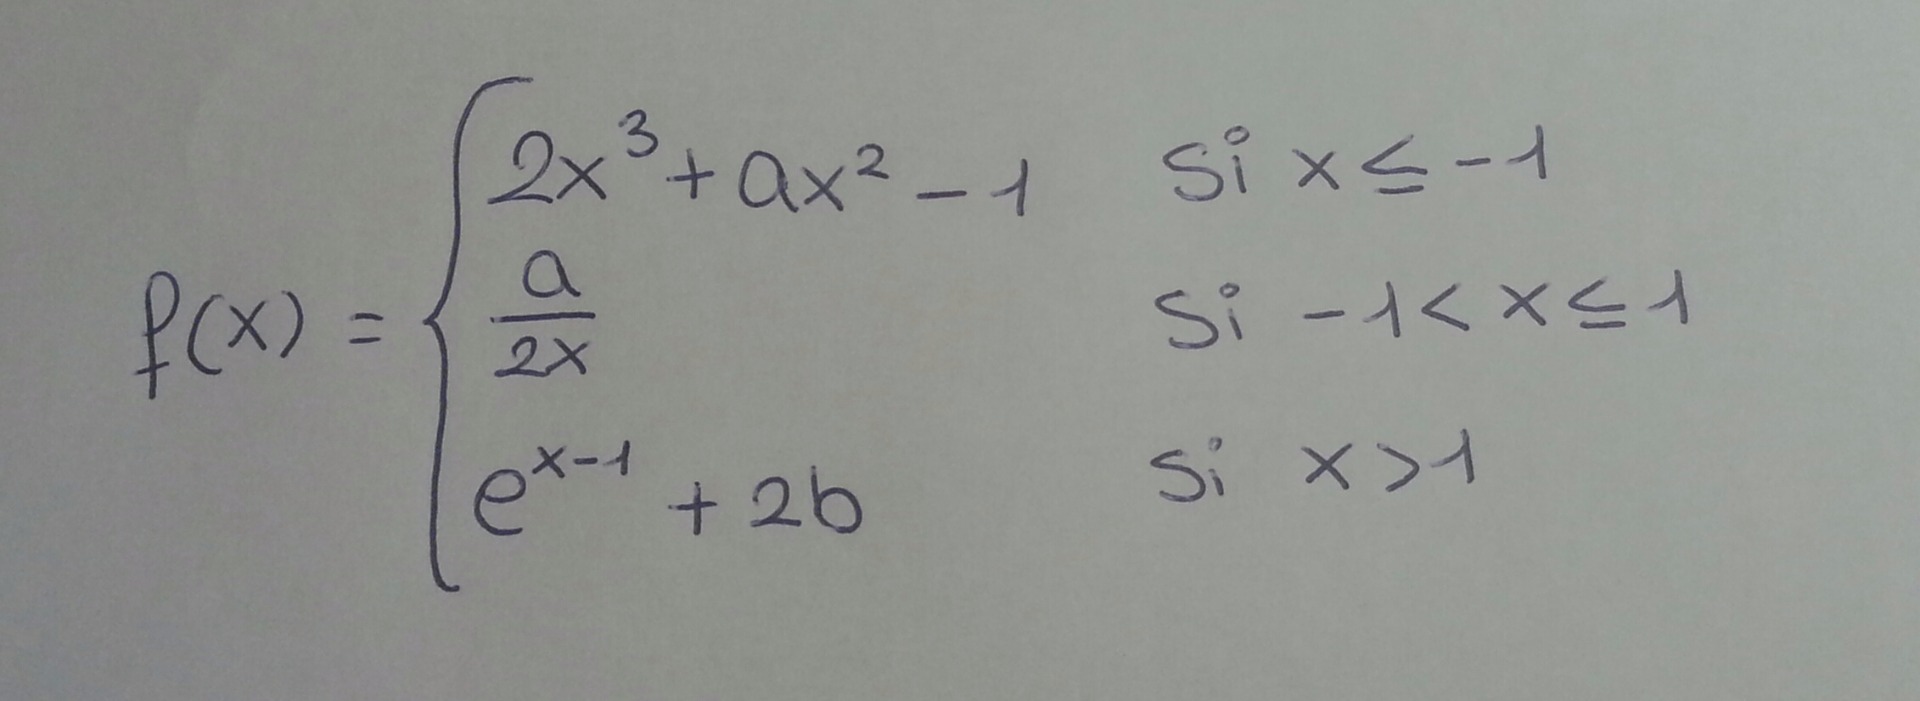 2x³ + ax² - 1 si x ≤ -1
f(x) = { a/2x si -1 < x ≤ 1
e^(x-1) + 2b si x > 1